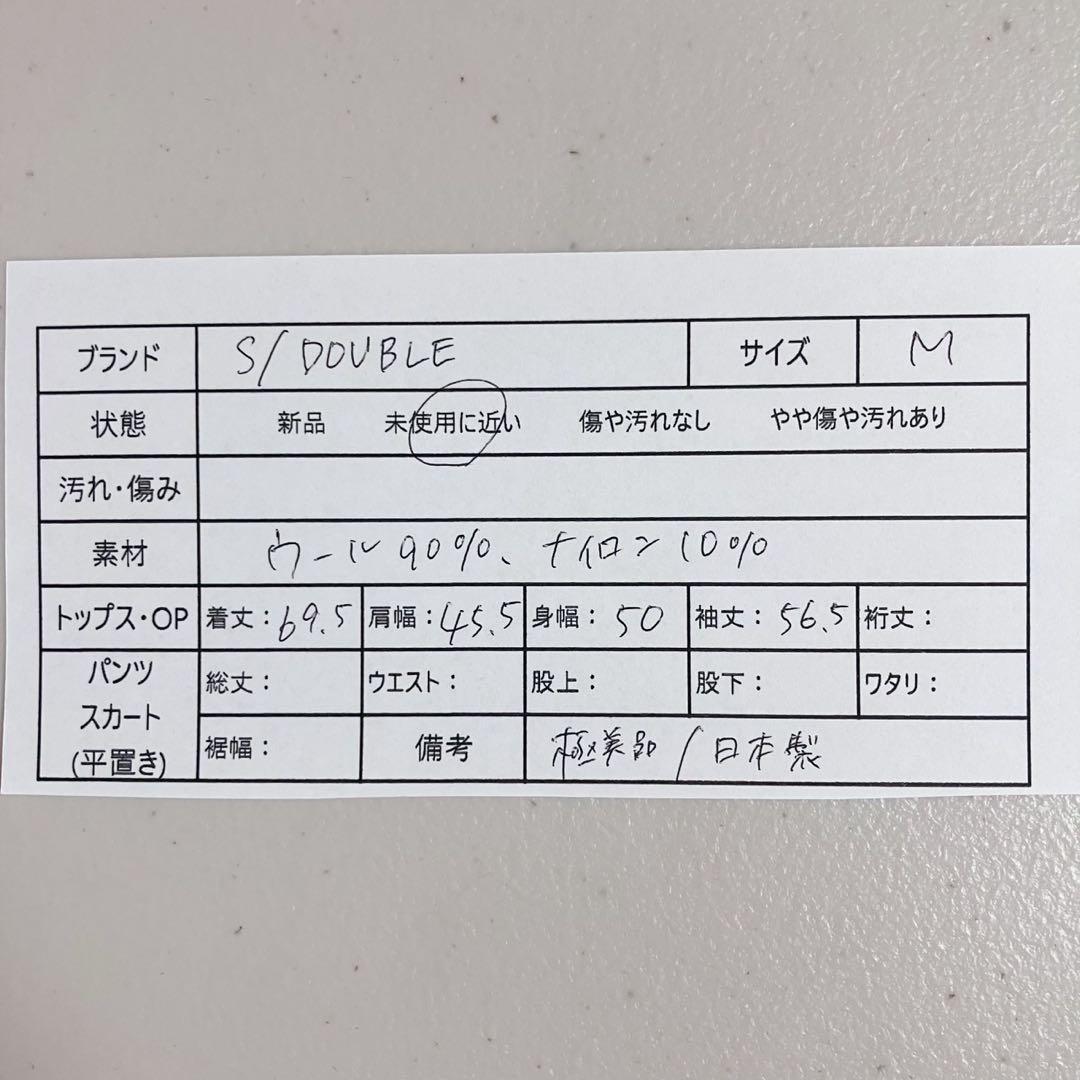 ブランド S/DOUBLE サイズ M
状態 新品 未使用に近い 傷や汚れなし やや傷や汚れあり
汚れ・傷み
素材 ウール90%、ナイロン10%
トップス・OP 着丈：69.5 肩幅：45.5 身幅：50 袖丈：56.5 裄丈：
パンツ
スカート
(平置き)
総丈： ウエスト： 股上： 股下： ワタリ：
裾幅： 備考 極美品/日本製